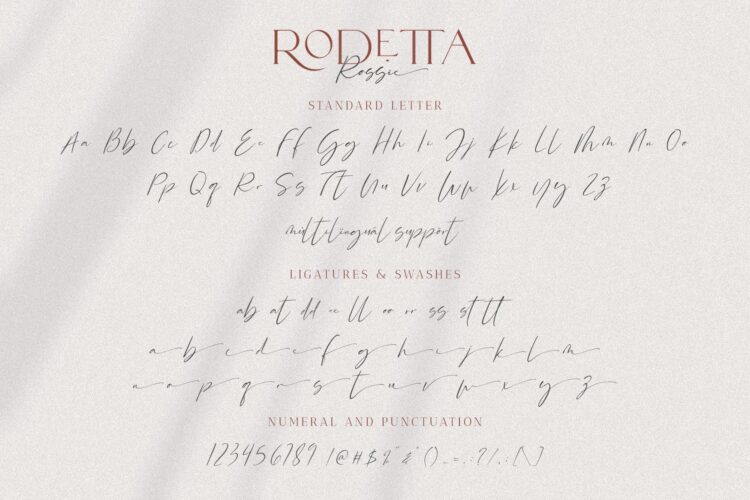 RODETTA
Rossie
STANDARD LETTER
Aa Bb Cc Dd Ee Ff Gg Hh Ii Jj Kk Ll Mm Nn Oo
Pp Qq Rr Ss Tt Uu Vv Ww Xx Yy Zz
multilingual support
LIGATURES & SWASHES
ab at dd ee ll oo rr ss st tt
a b c d e f g h i j k l m
n o p q r s t u v w x y z
NUMERAL AND PUNCTUATION
123456789 !@#$%^&*()_-=,:?/,.;[\]